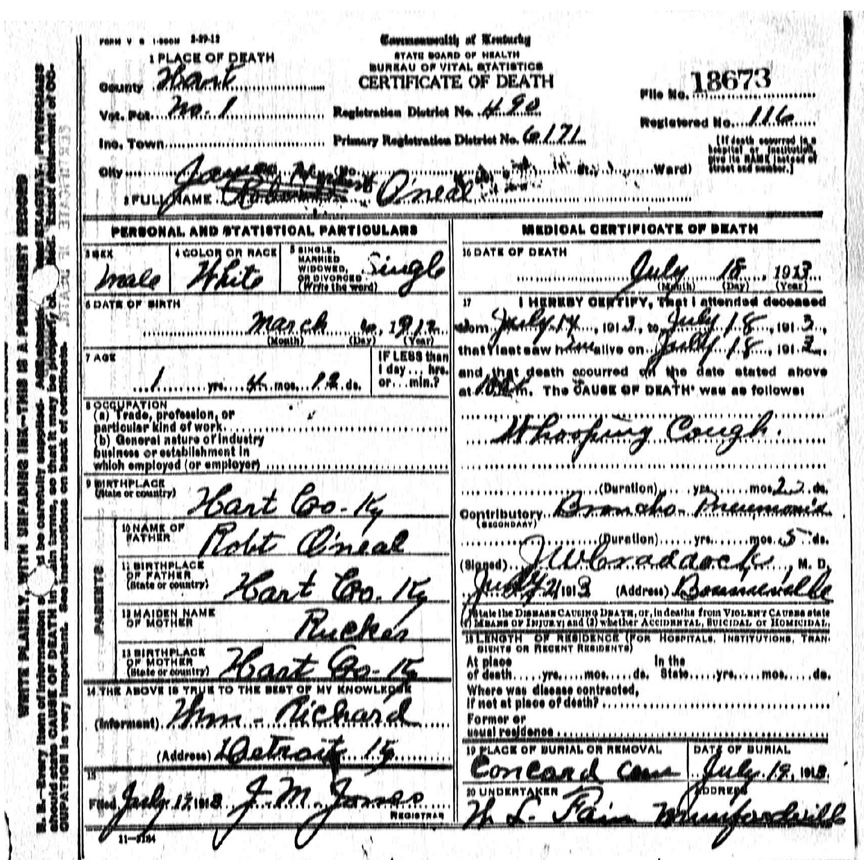 FORM V S 1-500M 3-29-12
Commonwealth of Kentucky
STATE BOARD OF HEALTH
BUREAU OF VITAL STATISTICS
CERTIFICATE OF DEATH
1 PLACE OF DEATH
County Hart
Vot. Pct. No. 1
Inc. Town
City
Registration District No. 490
Primary Registration District No. 6171
File No. 18673
Registered No. 116
St., Ward)
[If death occurred in a
hospital or institution,
give its NAME instead of
street and number.]
2 FULL NAME James O'neal
PERSONAL AND STATISTICAL PARTICULARS
3 SEX male
4 COLOR OR RACE White
5 SINGLE,
MARRIED
WIDOWED,
OR DIVORCED
(Write the word) Single
6 DATE OF BIRTH
March 6, 1912
(Month) (Day) (Year)
7 AGE
1 yrs. 4 mos. 12 ds.
IF LESS than
1 day... hrs.
or... min.?
8 OCCUPATION
(a) Trade, profession, or
particular kind of work
(b) General nature of industry
business or establishment in
which employed (or employer)
9 BIRTHPLACE
(State or country) Hart Co-Ky
PARENTS
10 NAME OF
FATHER Robt O'neal
11 BIRTHPLACE
OF FATHER
(State or country) Hart Co. Ky
12 MAIDEN NAME
OF MOTHER Rucker
13 BIRTHPLACE
OF MOTHER
(State or country) Hart Co-Ky
14 THE ABOVE IS TRUE TO THE BEST OF MY KNOWLEDGE
(Informant) Wm - Richard
(Address) Detroit Ky
15
Filed July 17 1913 J. M. Jones
REGISTRAR
11-3184
MEDICAL CERTIFICATE OF DEATH
16 DATE OF DEATH
July 18, 1913
(Month) (Day) (Year)
17 I HEREBY CERTIFY, That I attended deceased
from July 14, 1913, to July 18, 1913,
that I last saw him alive on July 18, 1913,
and that death occurred on the date stated above
at m. The CAUSE OF DEATH was as follows:
Whooping Cough.
(Duration) yrs. mos. 22 ds.
Contributory Broncho-Pneumonia
(SECONDARY)
(Duration) yrs. mos. 5 ds.
(Signed) J W Craddock, M. D.
July 21 1913 (Address) Bonnieville
State the DISEASE CAUSING DEATH, or, in deaths from VIOLENT CAUSES state
(1) MEANS OF INJURY; and (2) whether ACCIDENTAL, SUICIDAL or HOMICIDAL.
18 LENGTH OF RESIDENCE (FOR HOSPITALS, INSTITUTIONS, TRAN-
SIENTS OR RECENT RESIDENTS)
At place In the
of death yrs. mos. ds. State yrs. mos. ds.
Where was disease contracted,
if not at place of death?
Former or
usual residence
19 PLACE OF BURIAL OR REMOVAL
Concord Cem
DATE OF BURIAL
July 19, 1913
20 UNDERTAKER
W L Fain
ADDRESS
Munfordville
WRITE PLAINLY, WITH UNFADING INK—THIS IS A PERMANENT RECORD
N. B.—Every item of information be carefully supplied. PHYSICIANS
should state CAUSE OF DEATH in terms, so that it may be properly Exact statement of OC-
CUPATION is very important. See instructions on back of certificate.